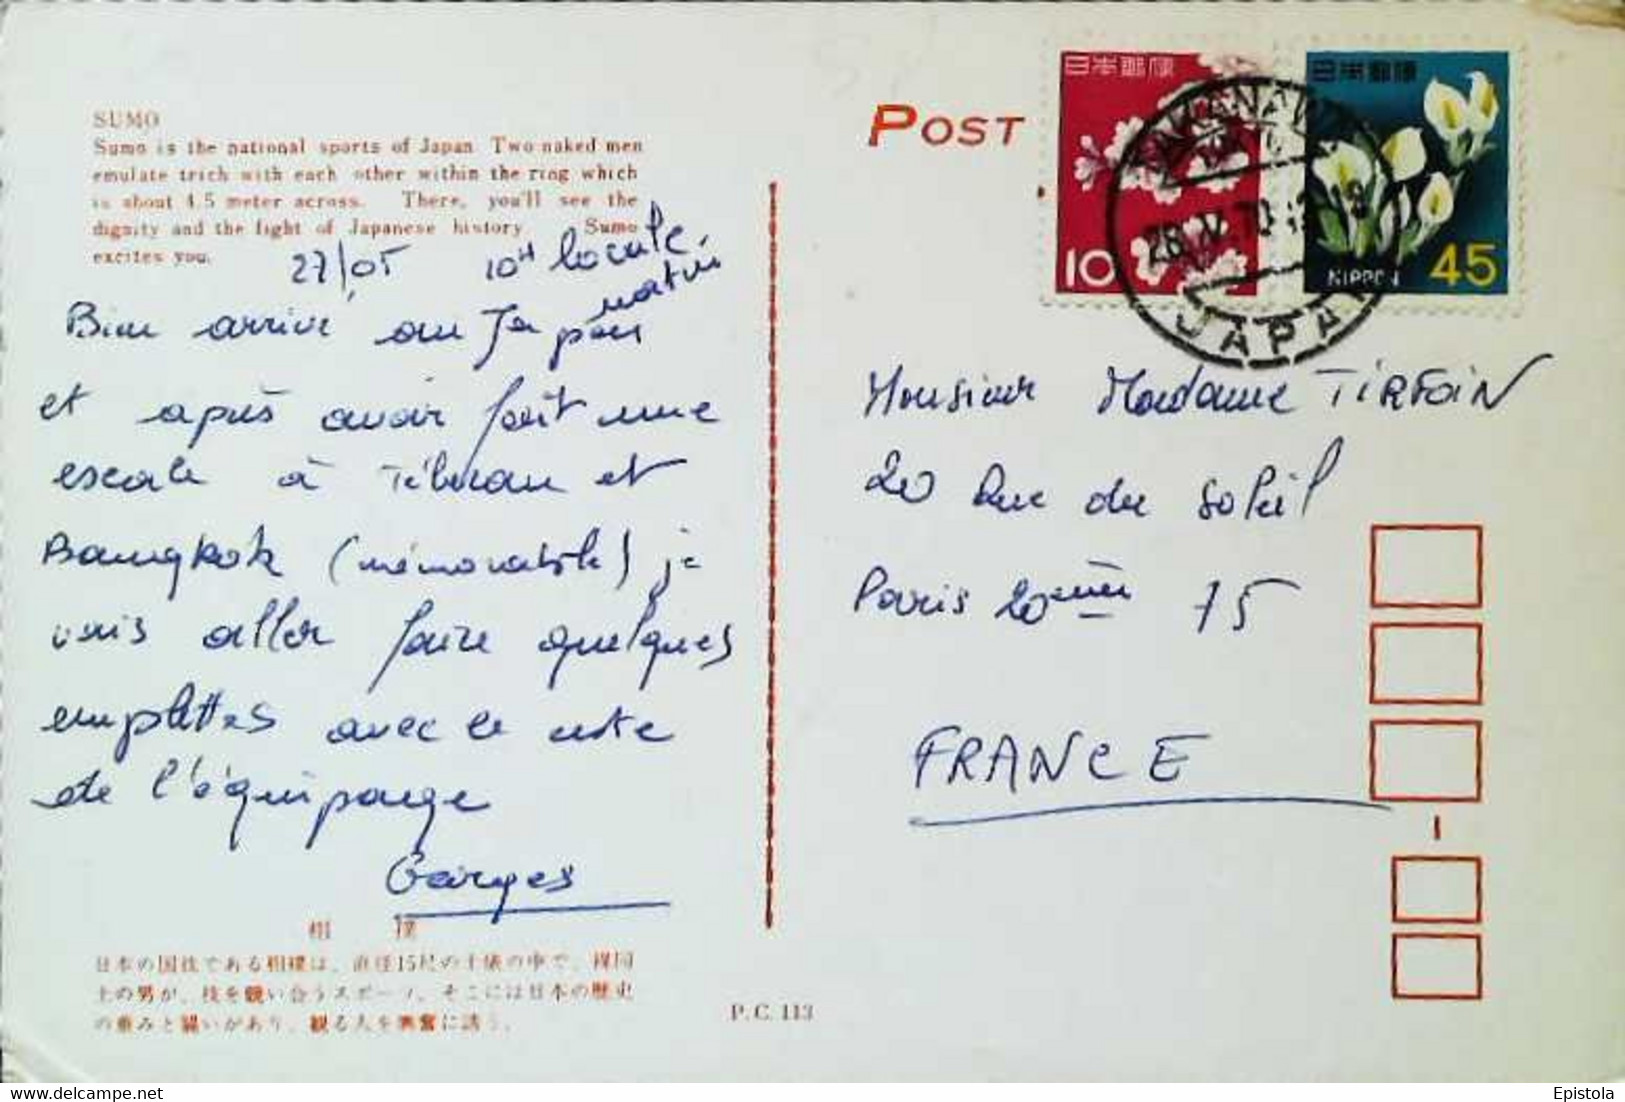 SUMO
Sumo is the national sports of Japan. Two naked men
emulate trich with each other within the ring which
is about 4.5 meter across. There, you'll see the
dignity and the fight of Japanese history. Sumo
excites you.
27/05 10H locale
matin
Bien arrivé au Japon
et après avoir fait une
escale à Téhéran et
Bangkok (mémorable) je
vais aller faire quelques
emplettes avec le reste
de l'équipage
Georges
相 撲
日本の国技である相撲は、直径15尺の土俵の中で、裸同
士の男が、技を競い合うスポーツ。そこには日本の歴史
の重みと闘いがあり、観る人を興奮に誘う。
P.C. 113
POST
日本郵便
10
日本郵便
NIPPON 45
TAKANAWA
TOKYO
JAPAN
Monsieur Madame TIRFOIN
20 Rue du Soleil
Paris 20ème 75
FRANCE
Epistola